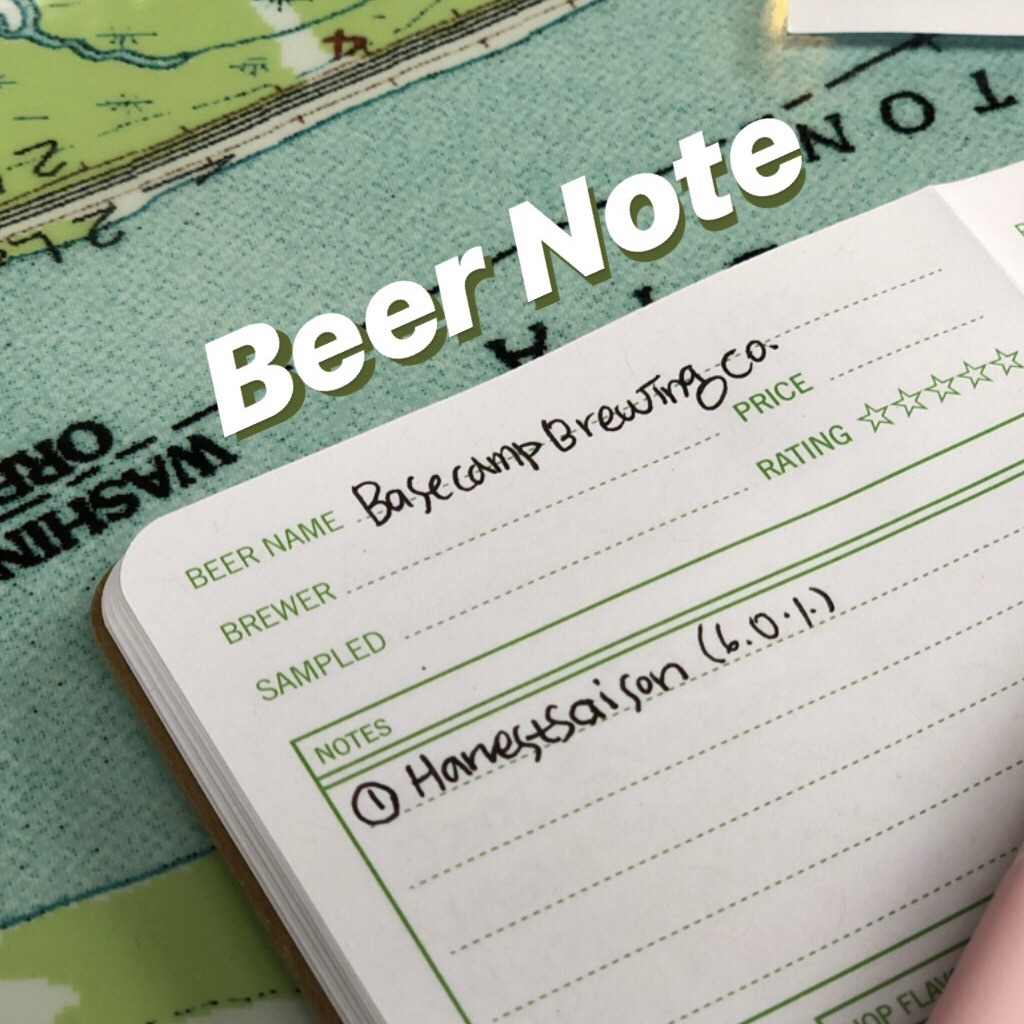 TON
Beer Note
WASHIN
ORE
BEER NAME Basecamp Brewing Co.
BREWER PRICE
SAMPLED RATING ☆☆☆☆☆
NOTES
① Harvest Saison (6.0%)
HOP FLAV